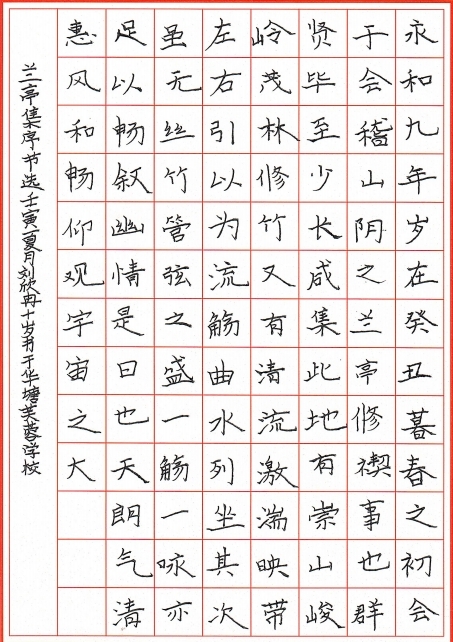 永和九年岁在癸丑暮春之初会
于会稽山阴之兰亭修禊事也群
贤毕至少长咸集此地有崇山峻
岭茂林修竹又有清流激湍映带
左右引以为流觞曲水列坐其次
虽无丝竹管弦之盛一觞一咏亦
足以畅叙幽情是日也天朗气清
惠风和畅仰观宇宙之大
兰亭集序节选壬寅夏月刘欣冉十岁书于华塘芙蓉学校